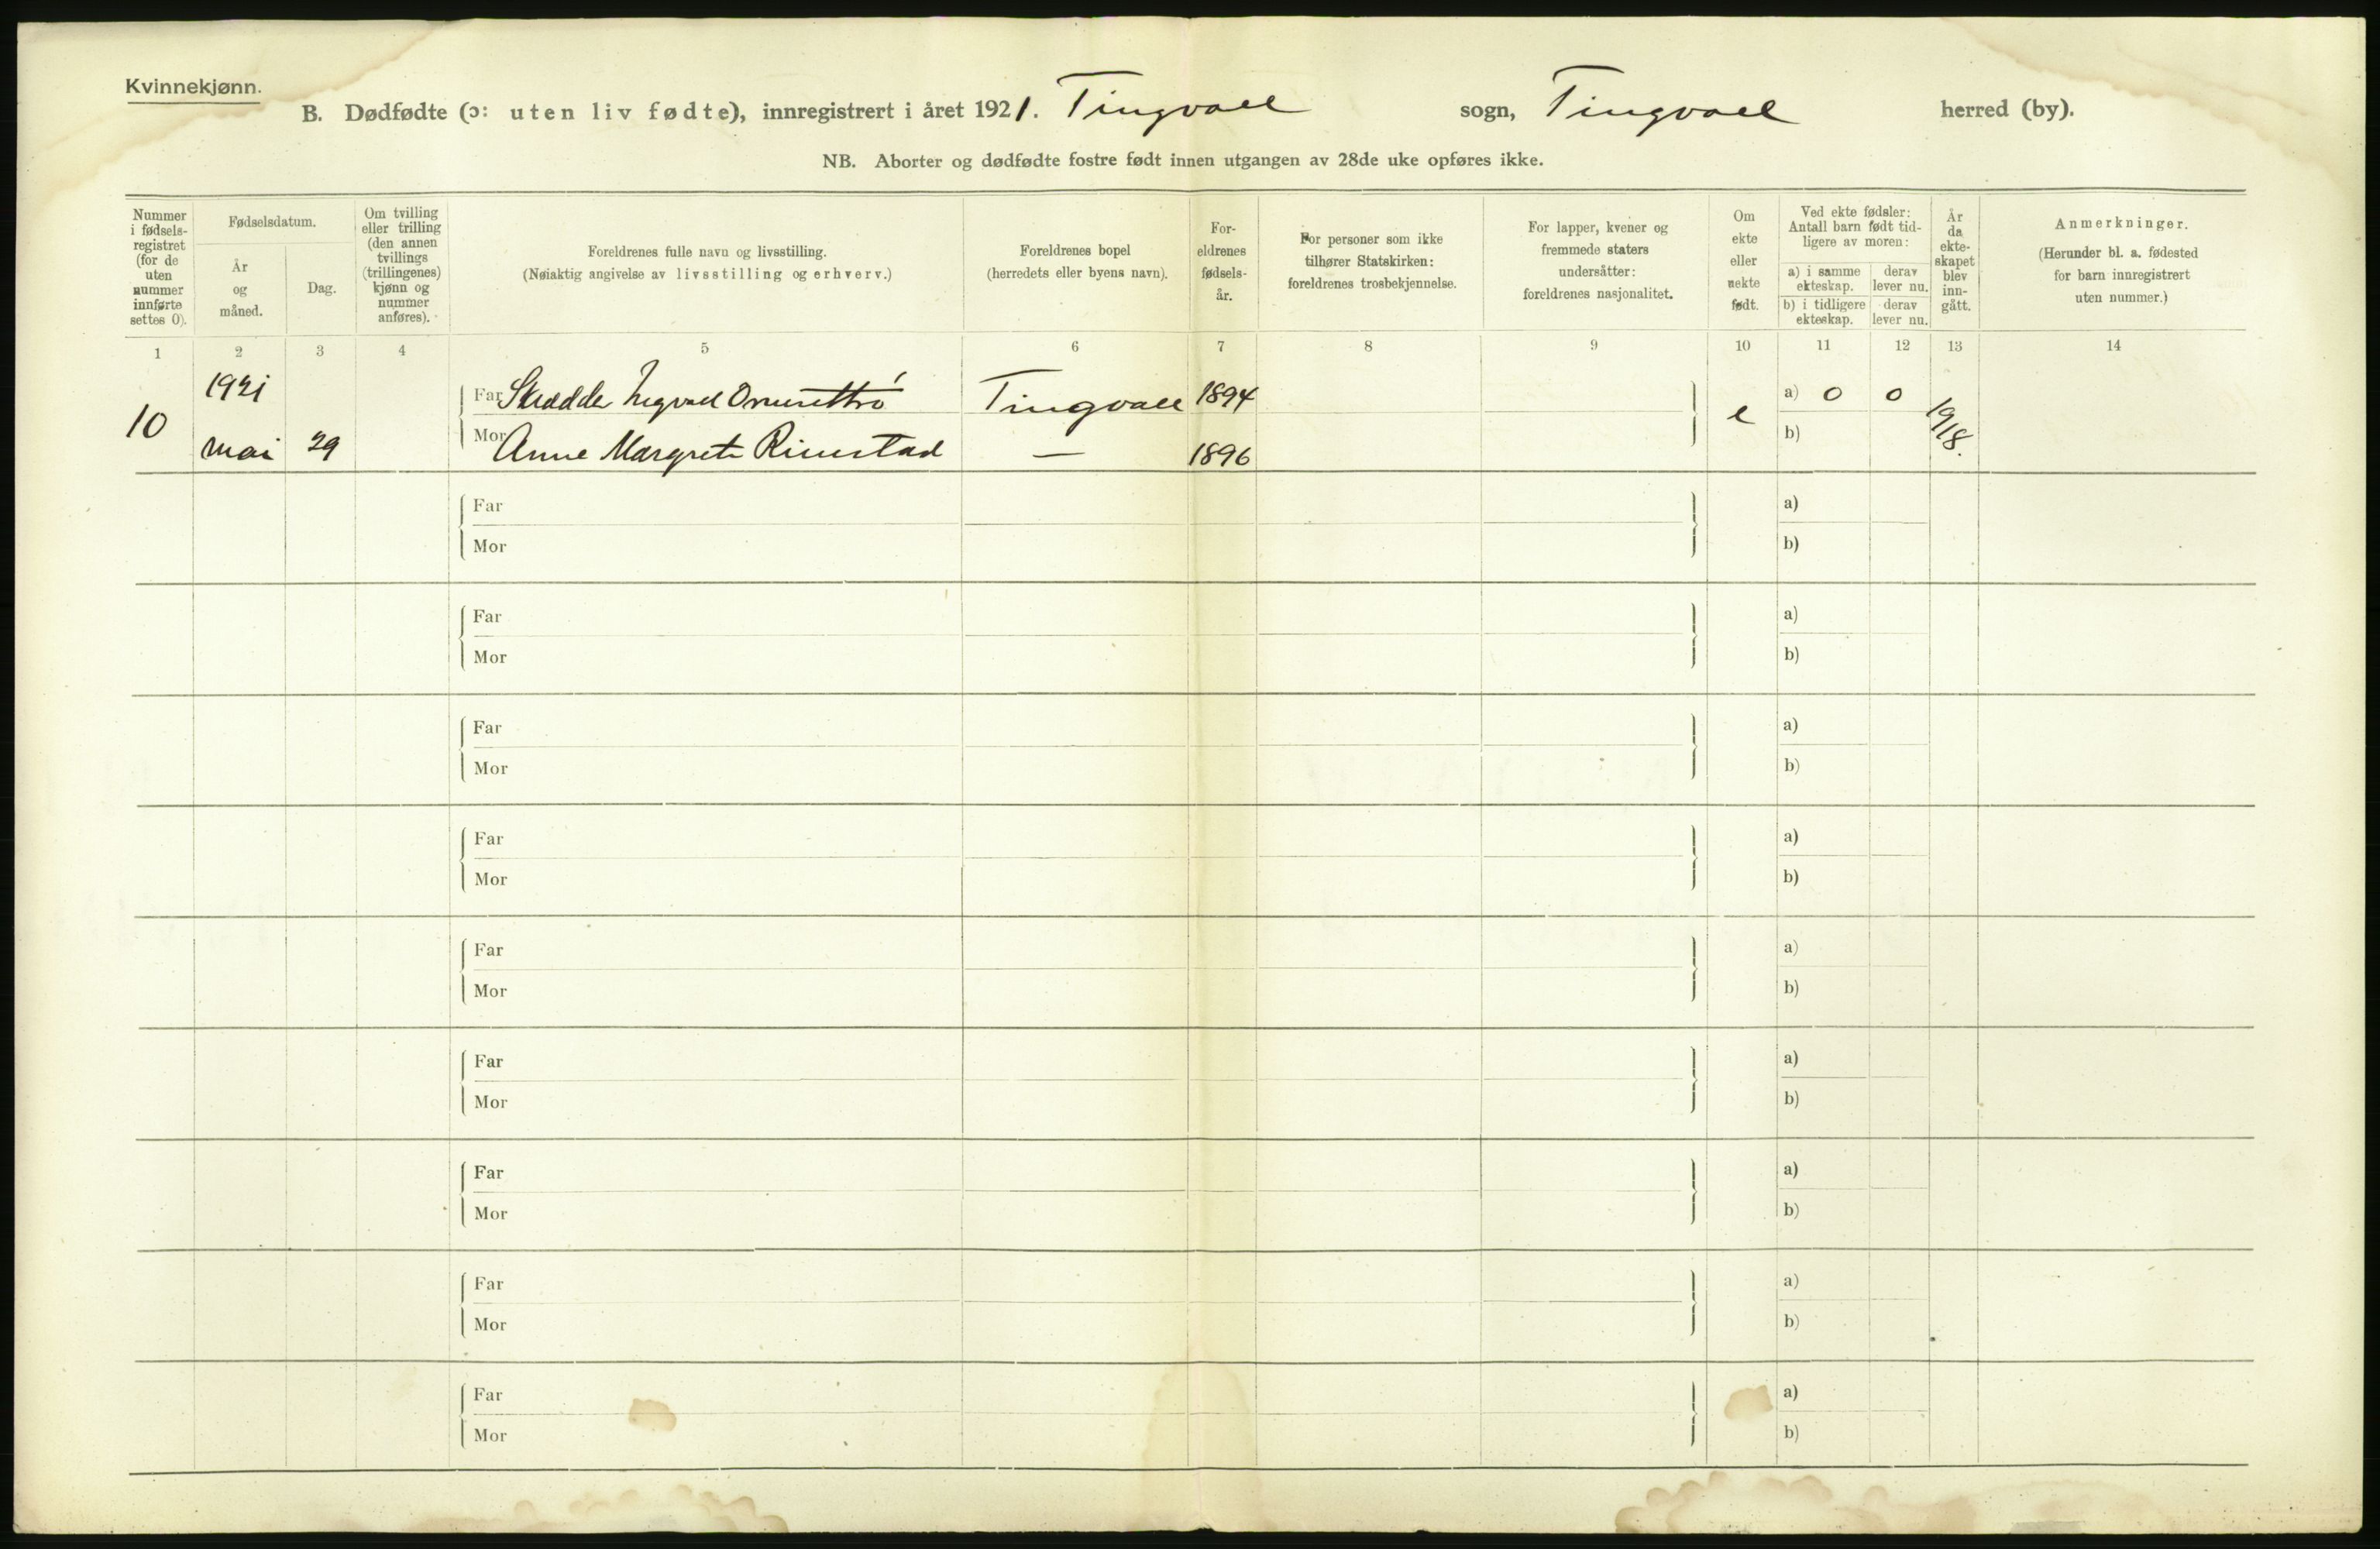 Kvinnekjønn.
B. Dødfødte (ɔ: uten liv fødte), innregistrert i året 1921. Tingvoll sogn, Tingvoll herred (by).
NB. Aborter og dødfødte fostre født innen utgangen av 28de uke opføres ikke.
Nummer i fødsels-registret (for de uten nummer innførte settes 0).
Fødselsdatum.
År og måned.
Dag.
Om tvilling eller trilling (den annen tvillings (trillingenes) kjønn og nummer anføres).
Foreldrenes fulle navn og livsstilling.
(Nøiaktig angivelse av livsstilling og erhverv.)
Foreldrenes bopel
(herredets eller byens navn).
For-eldrenes fødsels-år.
For personer som ikke tilhører Statskirken: foreldrenes trosbekjennelse.
For lapper, kvener og fremmede staters undersåtter: foreldrenes nasjonalitet.
Om ekte eller uekte født.
Ved ekte fødsler: Antall barn født tid-ligere av moren:
a) i samme ekteskap.
derav lever nu.
b) i tidligere ekteskap.
derav lever nu.
År da ekte-skapet blev inn-gått.
Anmerkninger.
(Herunder bl. a. fødested for barn innregistrert uten nummer.)
1 2 3 4 5 6 7 8 9 10 11 12 13 14
10 1921 mai 29
Far Skrædder Ingvald Tingvoll 1894 e a) 0 0 1918.
Mor Anne Margrete Rimstad — 1896 b)
Far a)
Mor b)
Far a)
Mor b)
Far a)
Mor b)
Far a)
Mor b)
Far a)
Mor b)
Far a)
Mor b)
Far a)
Mor b)
Far a)
Mor b)
Far a)
Mor b)